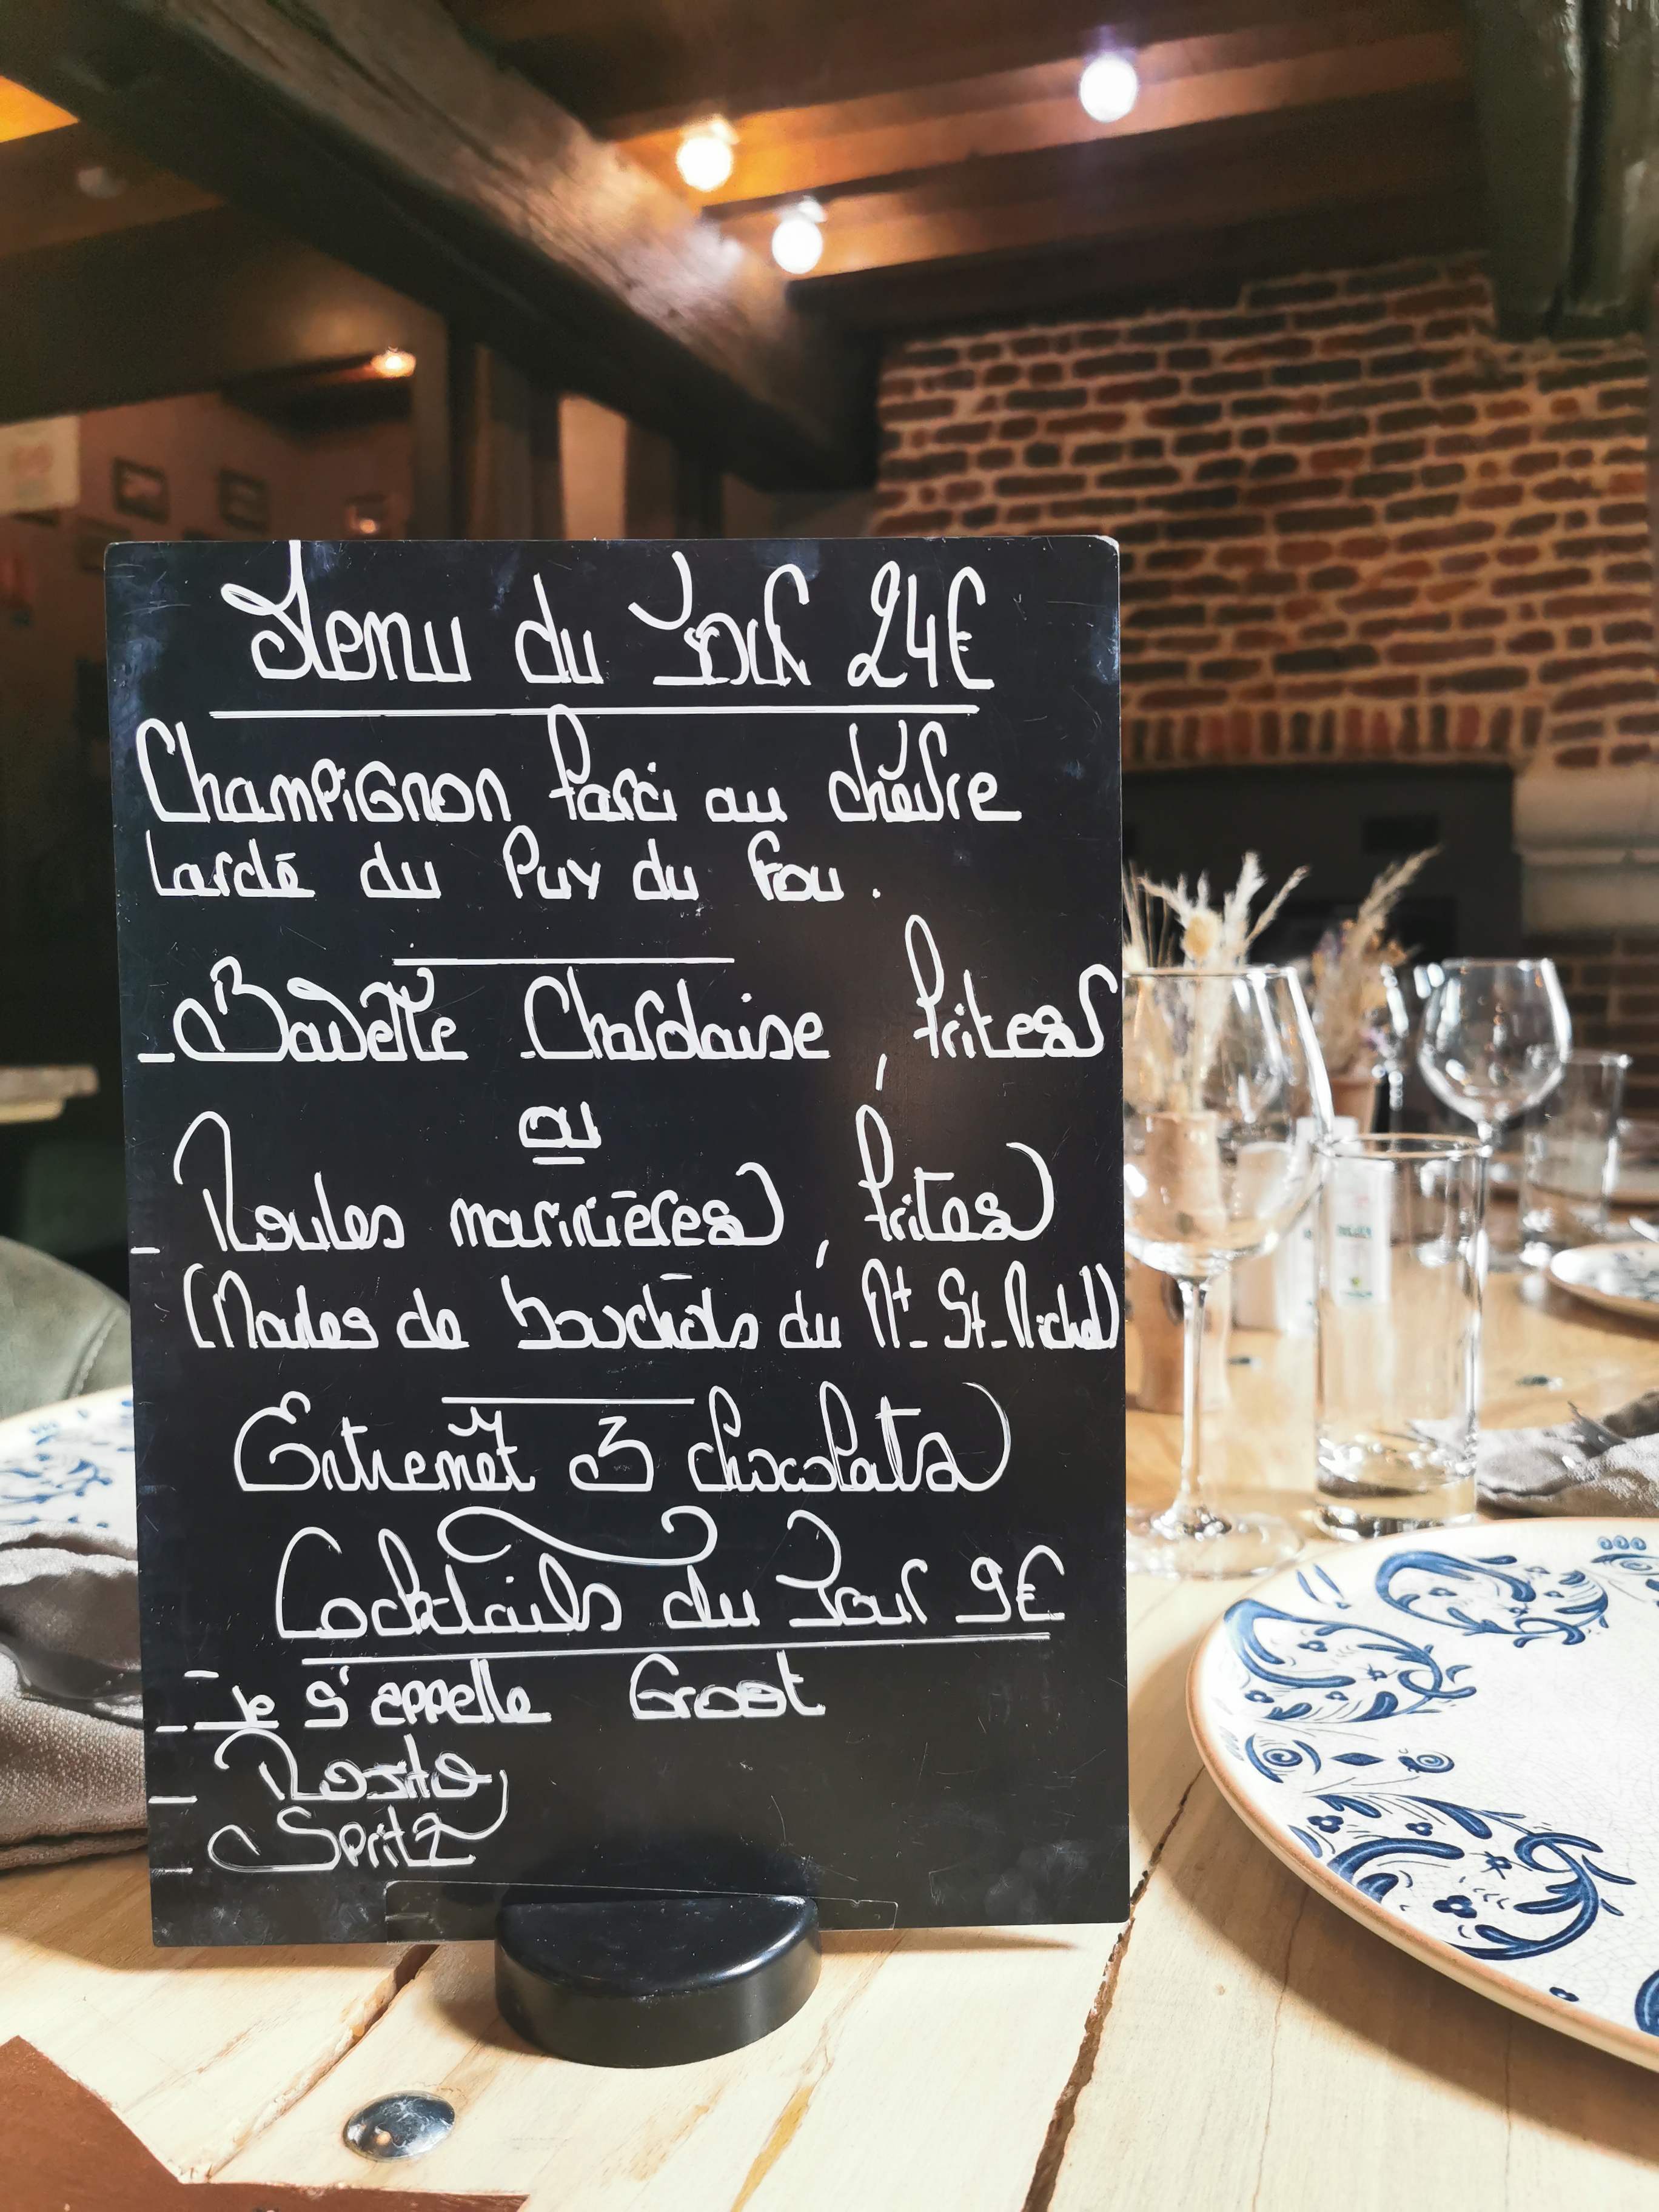 Menu du Jour 24€
Champignon farci au chèvre
Lardé du Puy du Fou.
- Bavette Charolaise, frites
ou
- Moules marinières, frites
(Moules de bouchots du Mt-St-Michel)
Entremet 3 chocolats
Cocktails du Jour 9€
- Je s'appelle Groot
-
- Spritz